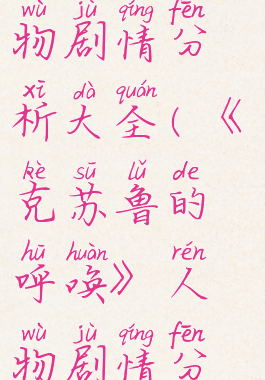 wù jù qíng fēn
物剧情分
xī dà quán
析大全(《
kè sū lǔ de
克苏鲁的
hū huàn rén
呼唤》人
wù jù qíng fēn
物剧情分